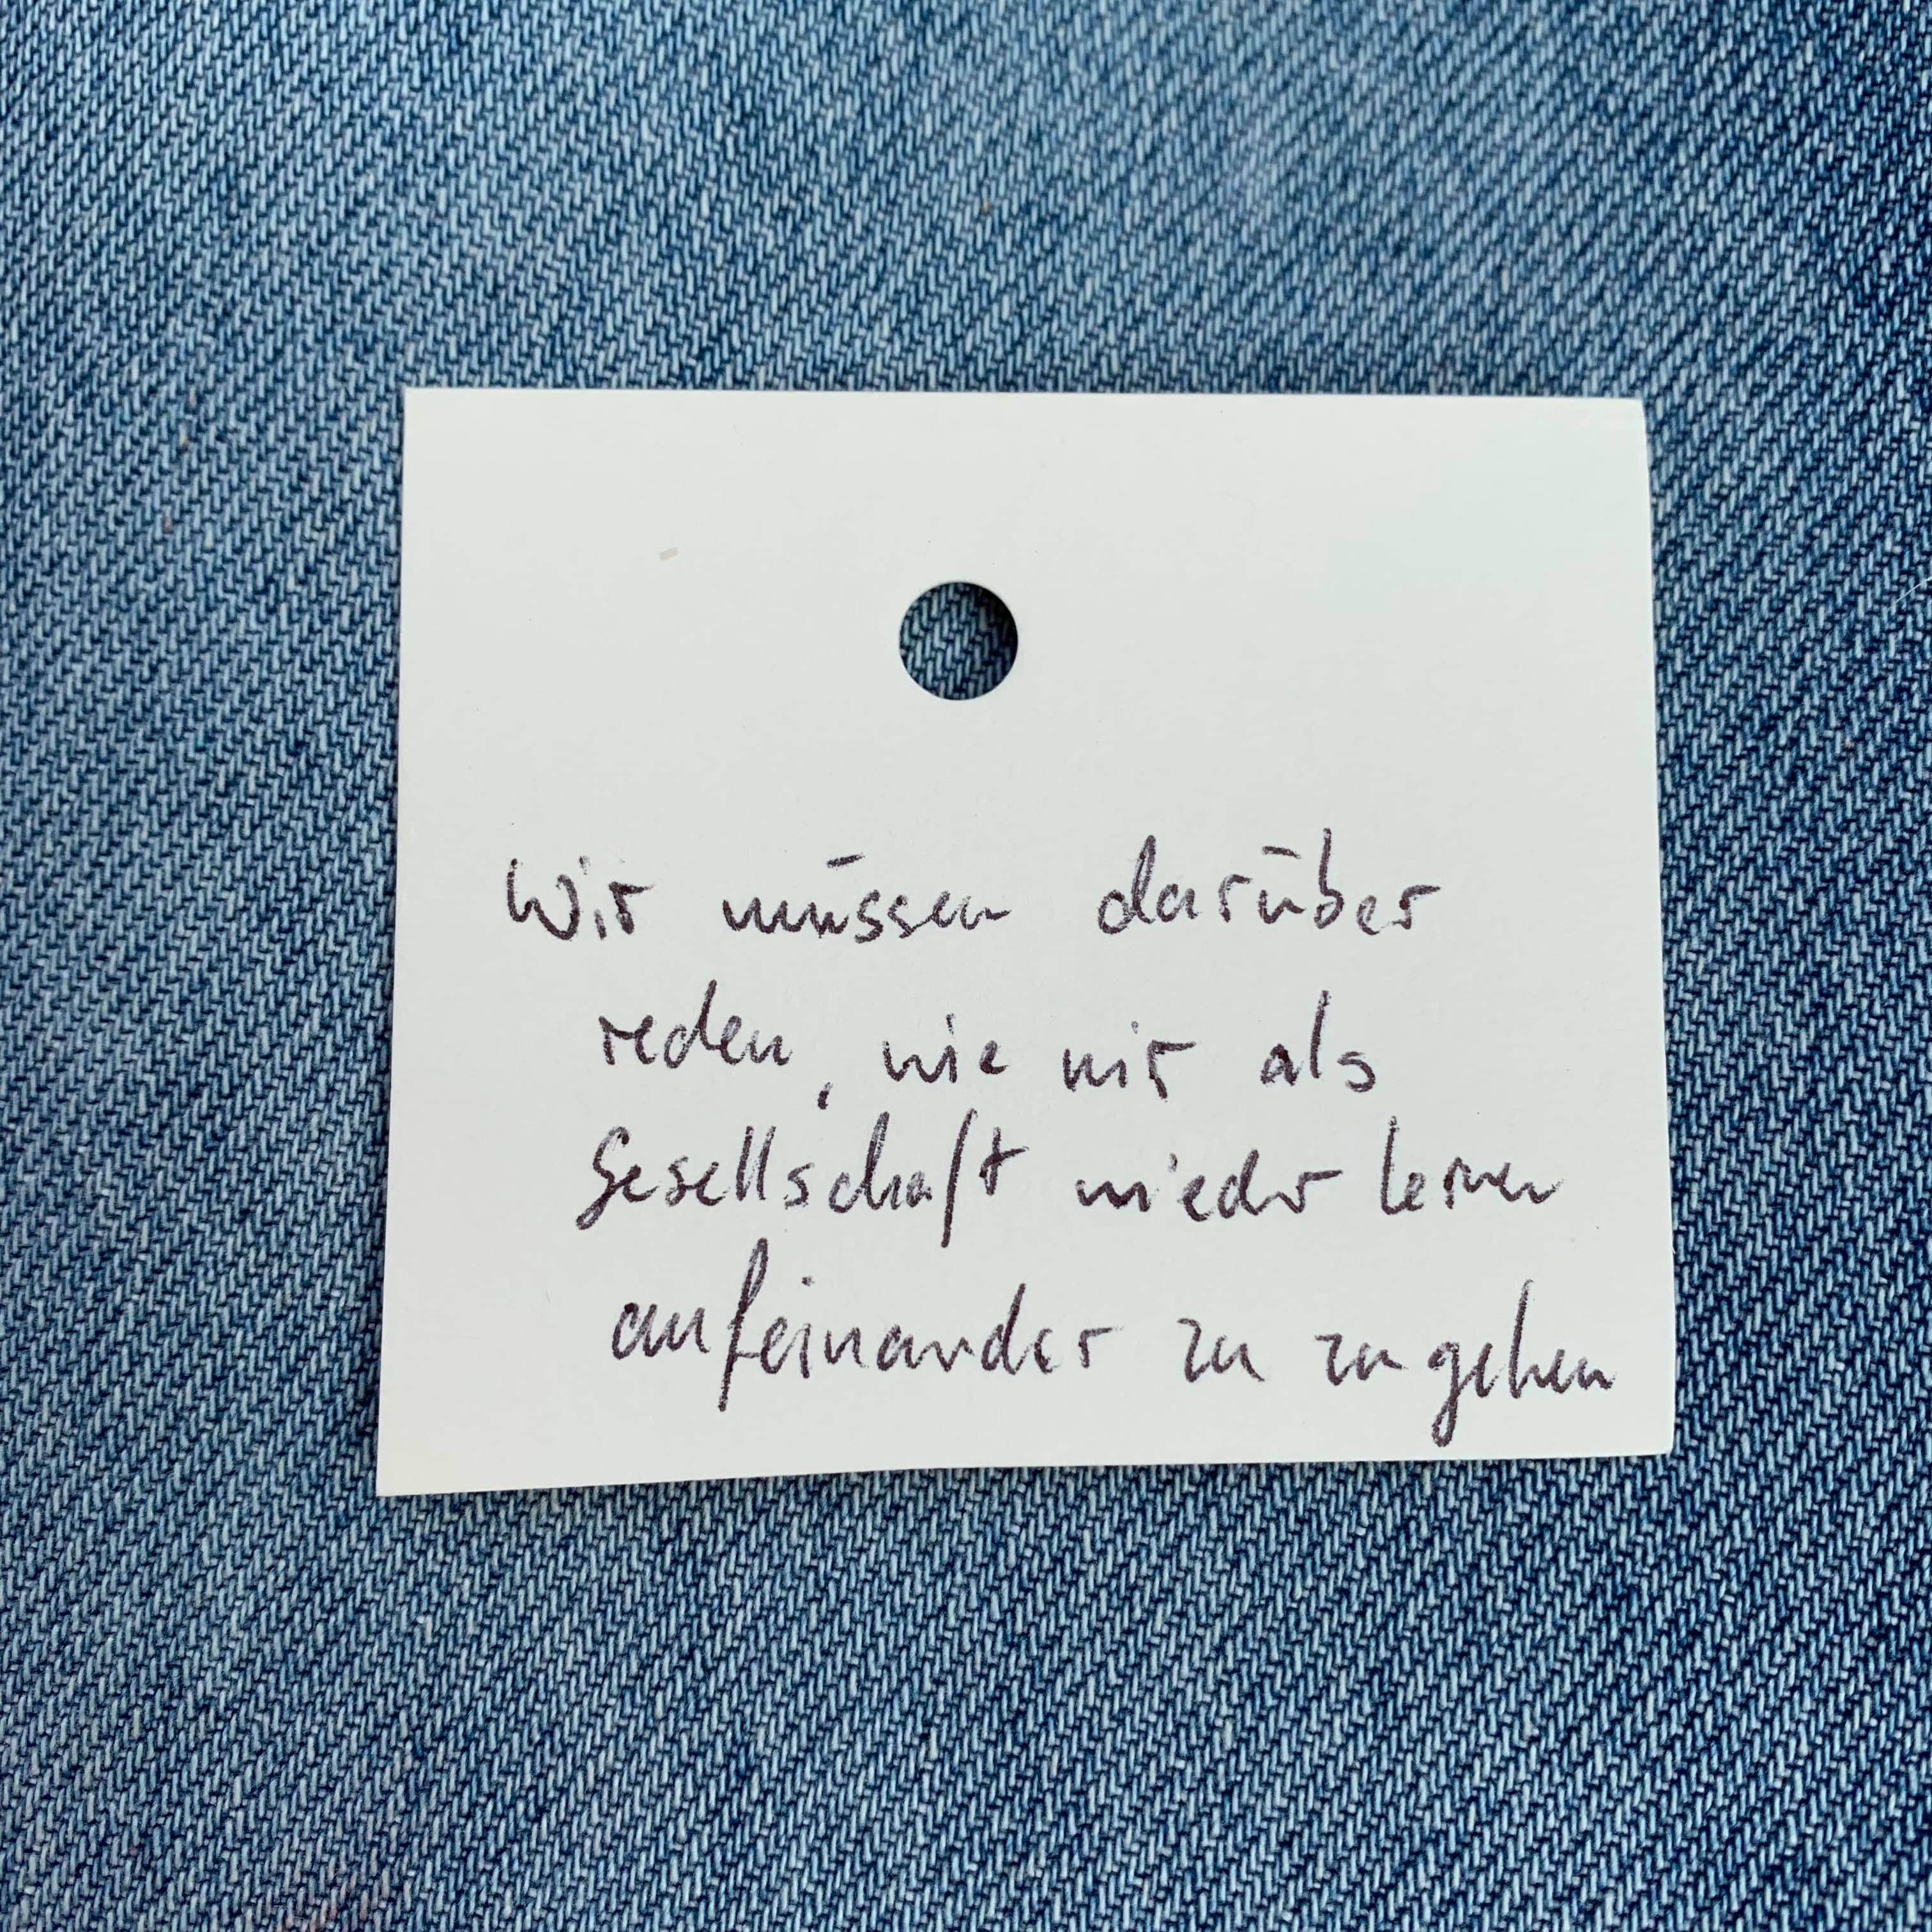 Wir müssen darüber
reden, wie wir als
Gesellschaft wieder lernen
aufeinander zu zu gehen